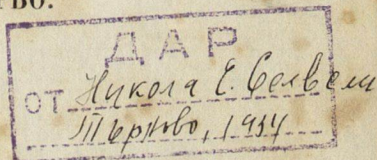 ТВО.
ДАР
ОТ Никола Е. Селвели
Търново, 1944